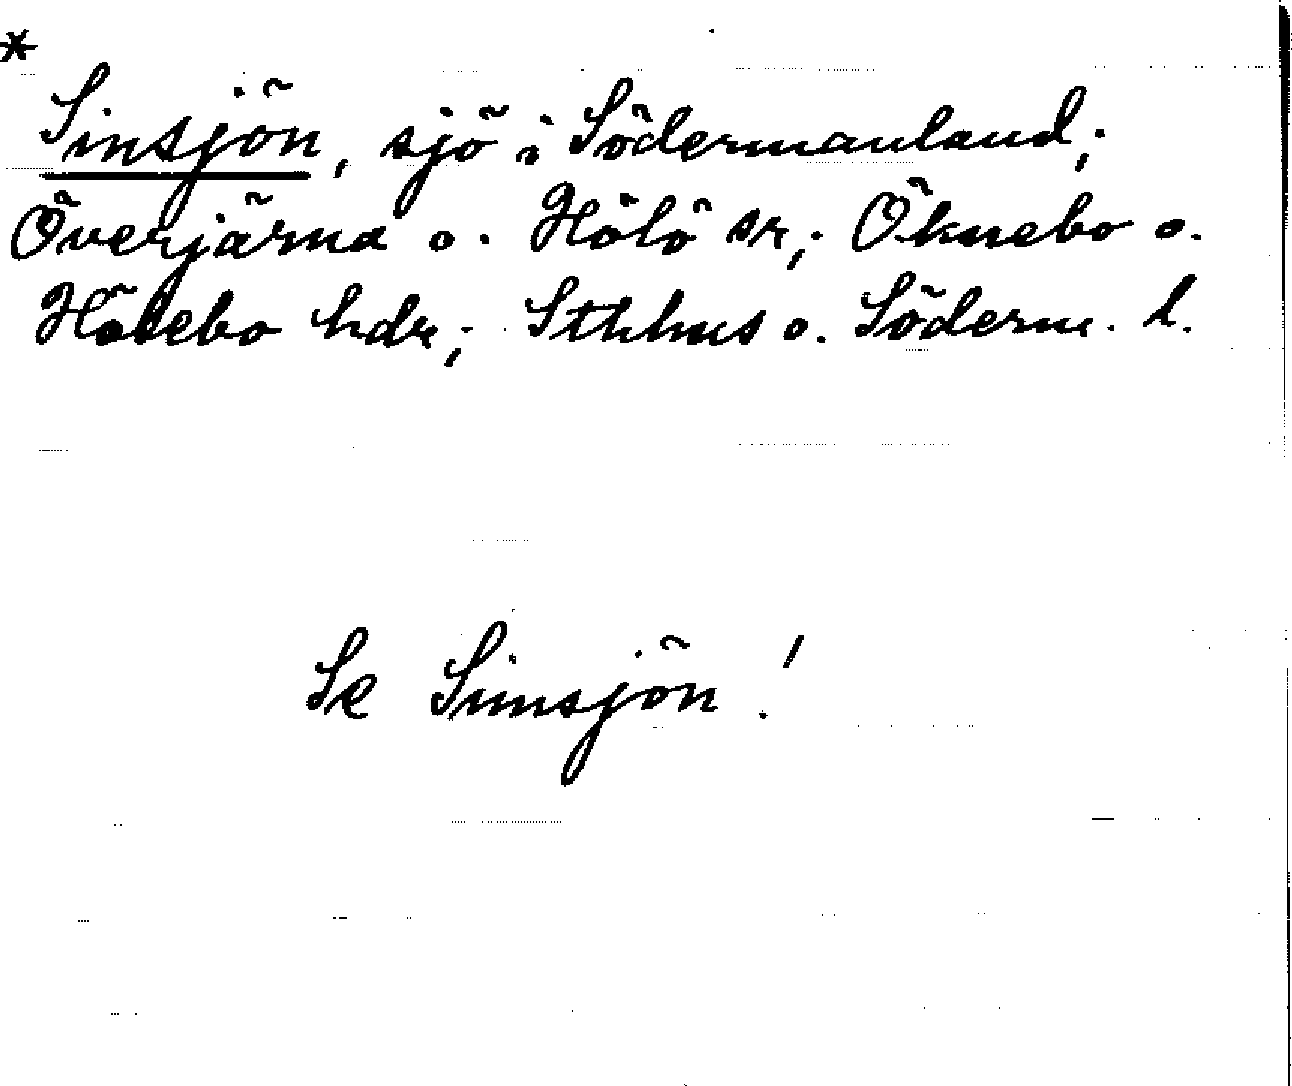 *
Sinsjön, sjö i Södermanland;
Överjärna o. Hölö sr; Öknebo o.
Hölebo hdr; Sthlms o. Söderm. l.
Se Simsjön!